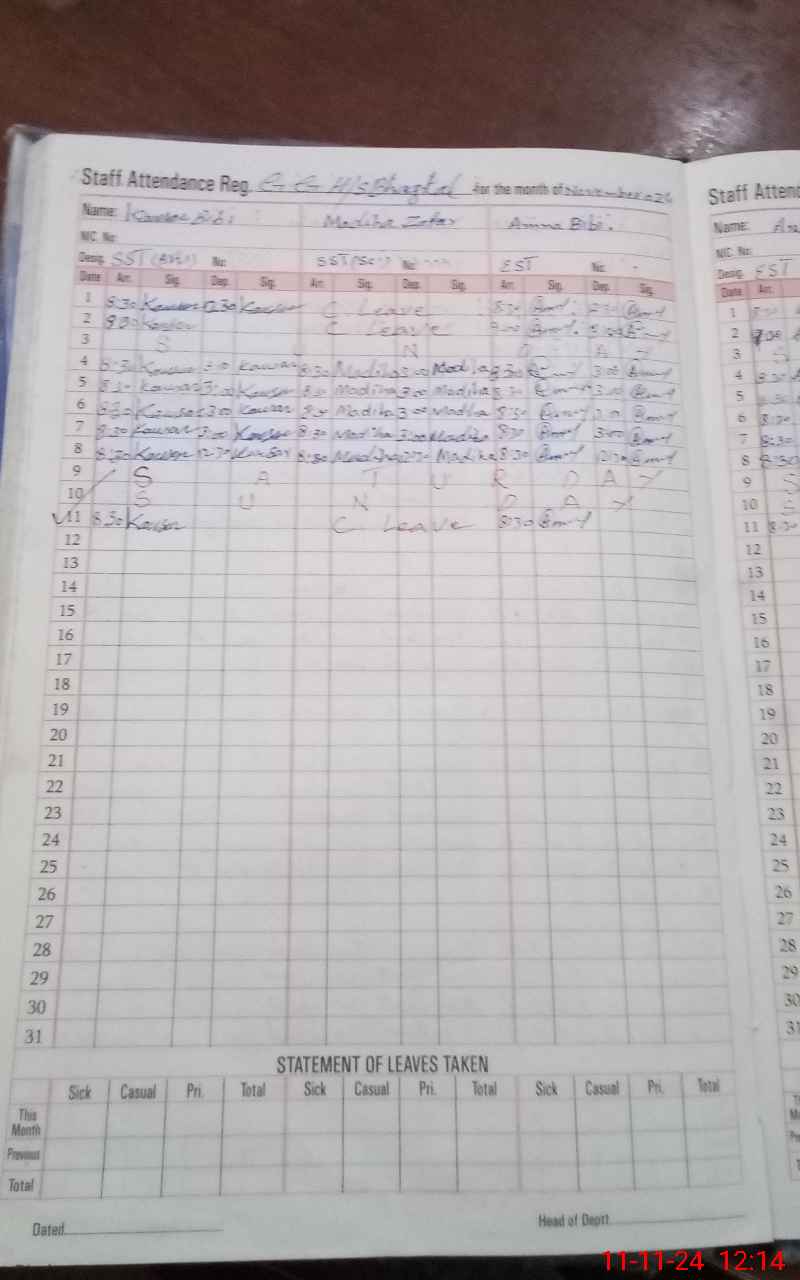 Staff Attendance Reg. G G H/S Bhagtal For the month of November 2024
Name: Kausar Bibi Madiha Zafar Amna Bibi.
NIC. No:
Desig. SST (Arts) No: SST (Sc.) No: EST No:
Date Arr. Sig. Dep. Sig. Arr. Sig. Dep. Sig. Arr. Sig. Dep. Sig.
1 8:30 Kausar 12:30 Kausar C Leave 8:30 12:30
2 8:30 Kausar C Leave 9:00
3 S U N D A Y
4 8:30 Kausar 3:00 Kausar 8:30 Madiha 3:00 Madiha 8:30 3:00
5 8:30 Kausar 3:00 Kausar 8:30 Madiha 3:00 Madiha 8:30 3:00
6 8:30 Kausar 3:00 Kausar 8:30 Madiha 3:00 Madiha 8:30 3:00
7 8:30 Kausar 3:00 Kausar 8:30 Madiha 3:00 Madiha 8:30 3:00
8 8:30 Kausar 12:30 Kausar 8:30 Madiha 12:30 Madiha 8:30 12:30
9 S A T U R D A Y
10 S U N D A Y
11 8:30 Kausar C Leave 8:30
12
13
14
15
16
17
18
19
20
21
22
23
24
25
26
27
28
29
30
31
STATEMENT OF LEAVES TAKEN
Sick Casual Pri. Total Sick Casual Pri. Total Sick Casual Pri. Total
This Month
Previous
Total
Dated
Head of Deptt.
Staff Attend
Name:
NIC. No:
Desig. EST
Date Arr.
1
2
3 S
4 8:30
5
6
7 8:30
8 8:30
9 S
10 S
11 8:30
12
13
14
15
16
17
18
19
20
21
22
23
24
25
26
27
28
29
30
31
11-11-24 12:14